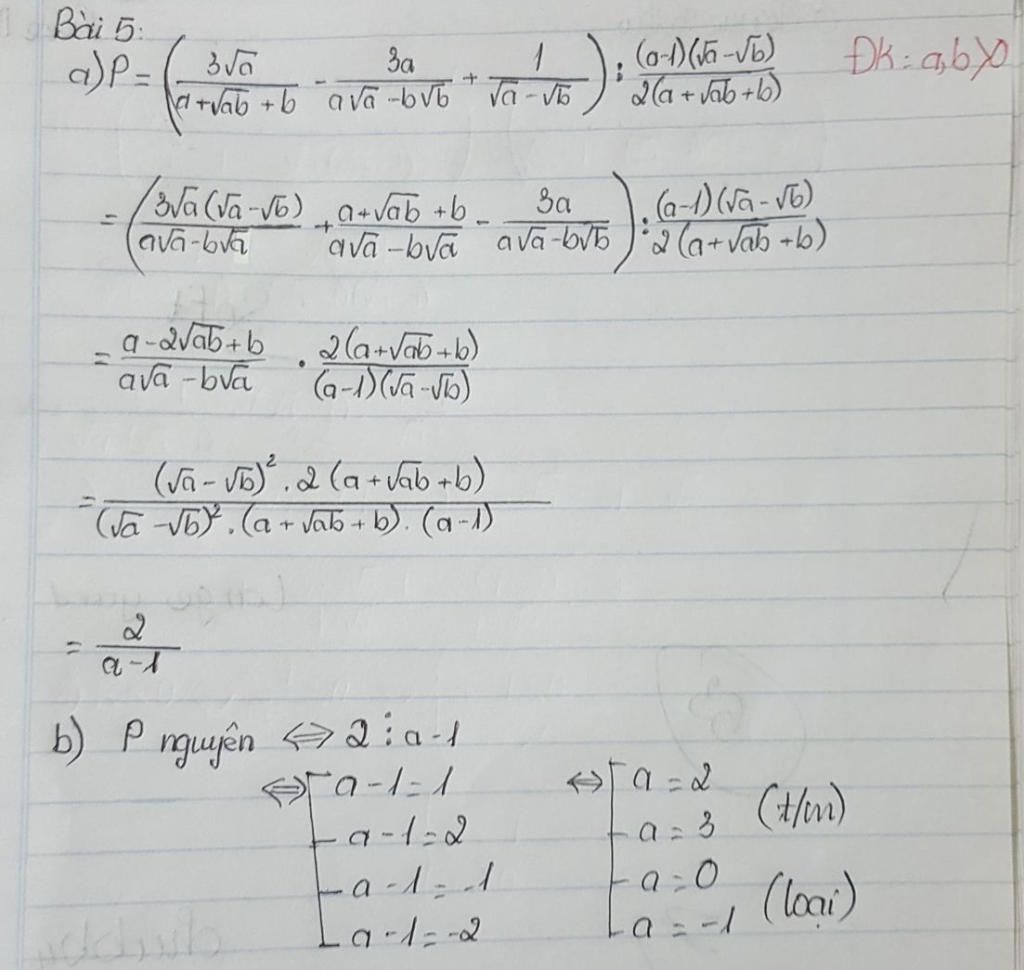 Bài 5:
a) P = (3√a / (a+√ab+b) - 3a / (a√a - b√b) + 1 / (√a - √b)) : (a-1)(√a-√b) / 2(a+√ab+b) ĐK: a,b>0
= (3√a(√a-√b) / (a√a-b√a) + (a+√ab+b) / (a√a-b√a) - 3a / (a√a-b√b)) : (a-1)(√a-√b) / 2(a+√ab+b)
= (a-2√ab+b) / (a√a-b√a) . 2(a+√ab+b) / (a-1)(√a-√b)
= (√a-√b)².2(a+√ab+b) / (√a-√b)².(a+√ab+b).(a-1)
= 2 / (a-1)
b) P nguyên ⇔ 2 ⋮ a-1
⇔ [ a-1=1 ⇔ [ a=2
a-1=2 a=3 (t/m)
a-1=-1 a=0
a-1=-2 a=-1 (loại)